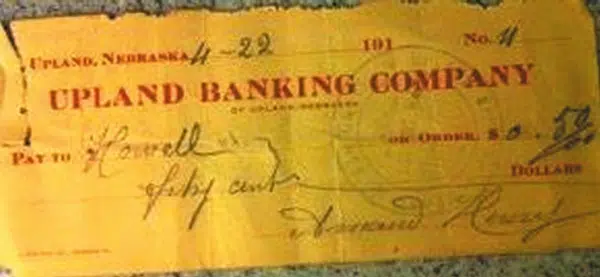 UPLAND, NEBRASKA 4-22 191 No. 4
UPLAND BANKING COMPANY
OF UPLAND, NEBRASKA
PAY TO Howell OR ORDER, $ 0.50/00
fifty cents DOLLARS
Armand